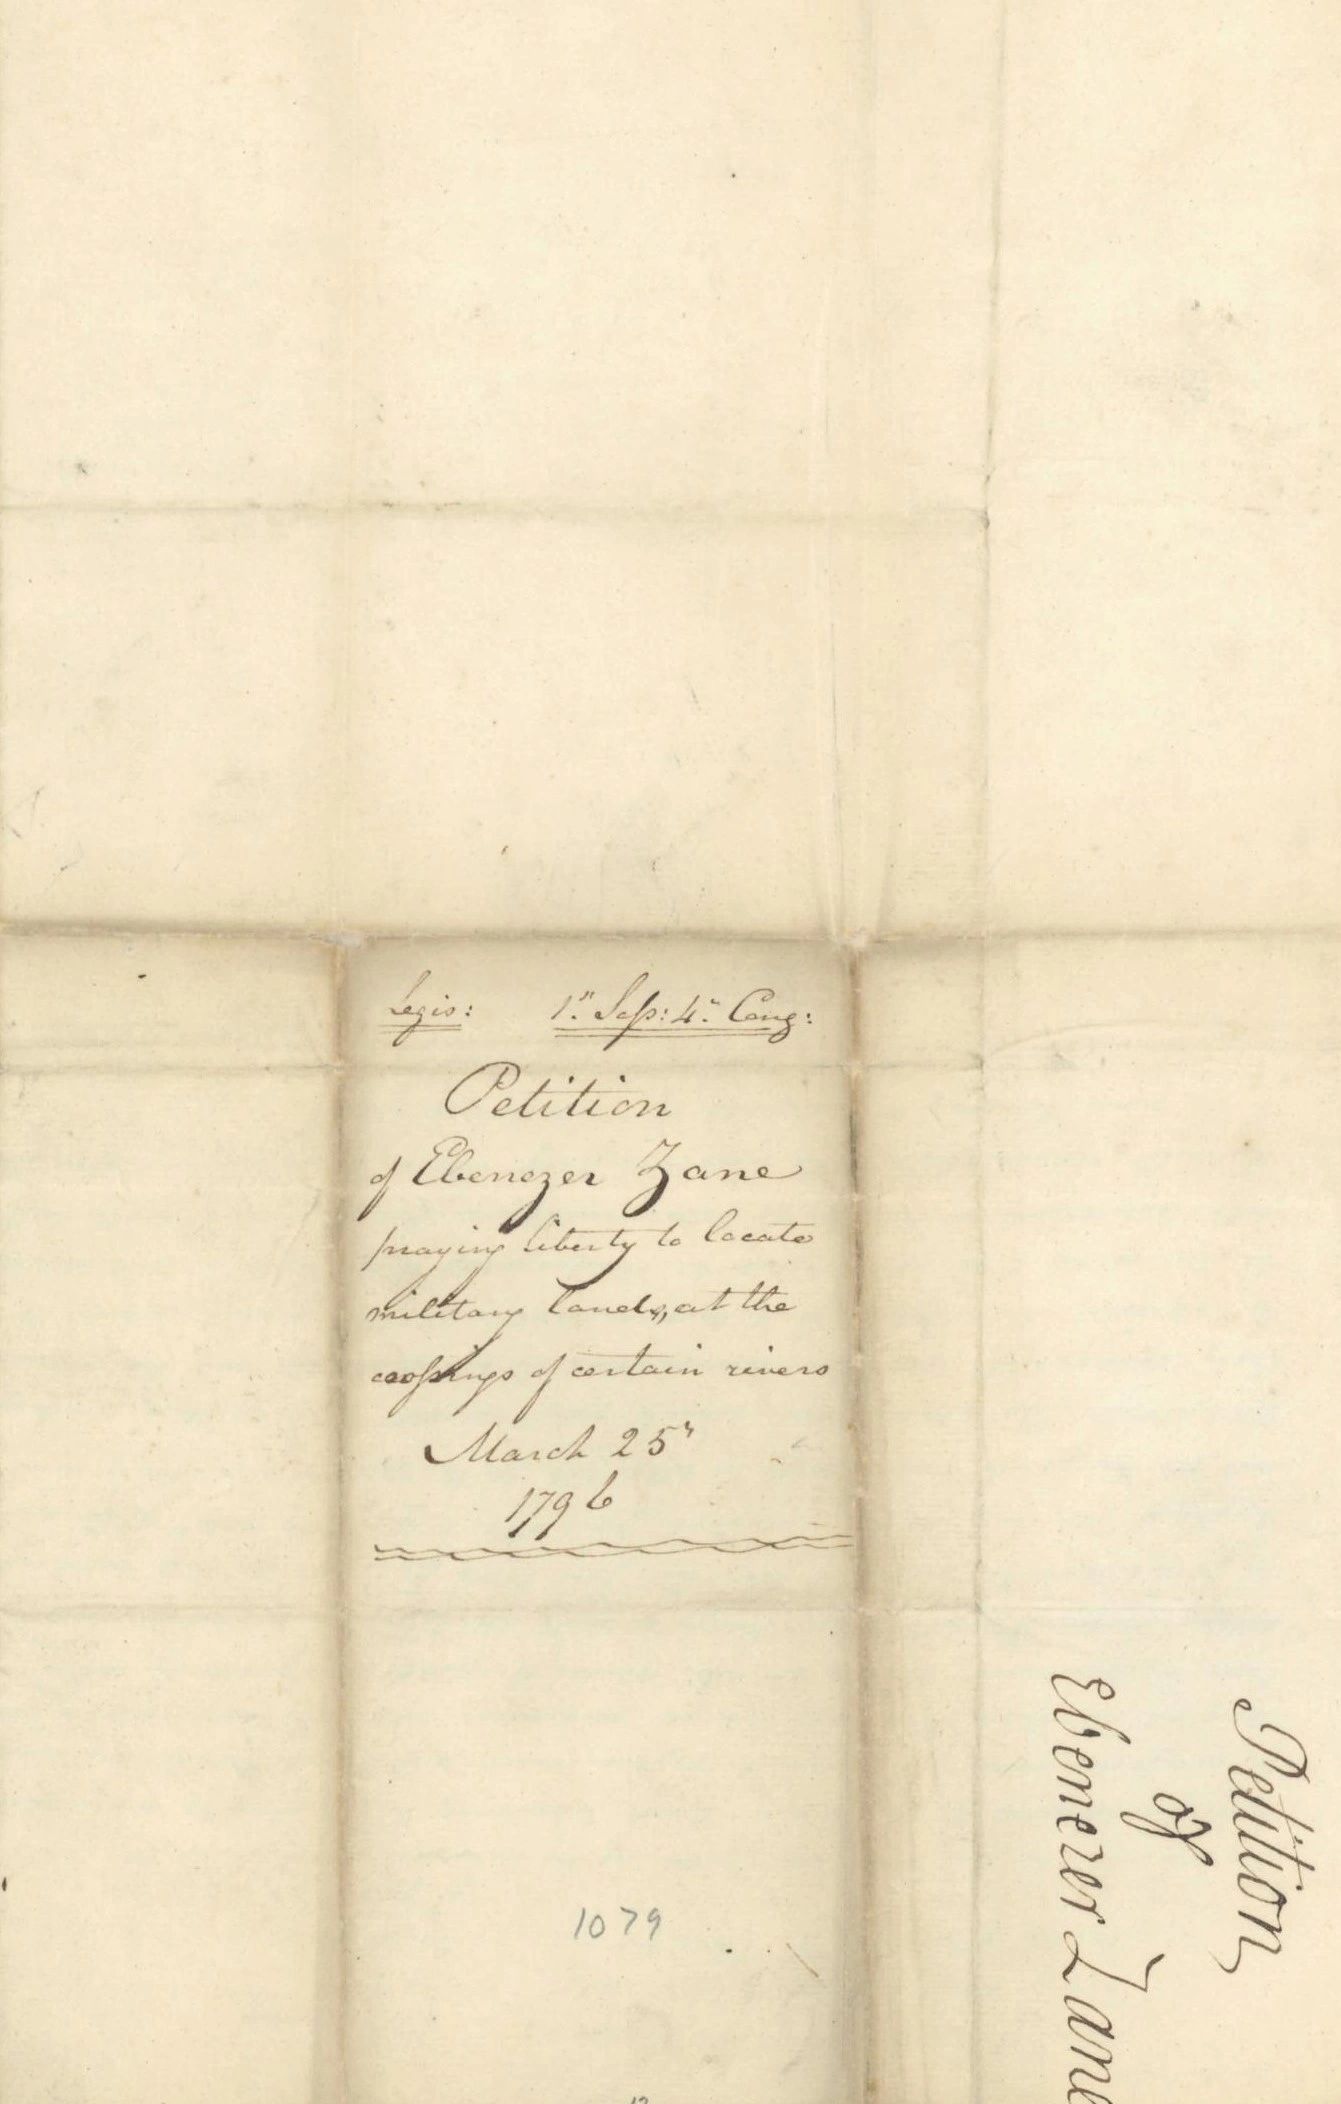 Legis: 1st. Sess: 4th. Cong:
Petition
of Ebenezer Zane
praying liberty to locate
military lands, at the
crossings of certain rivers
March 25"
1796
1079
Petition
of
Ebenezer Zane